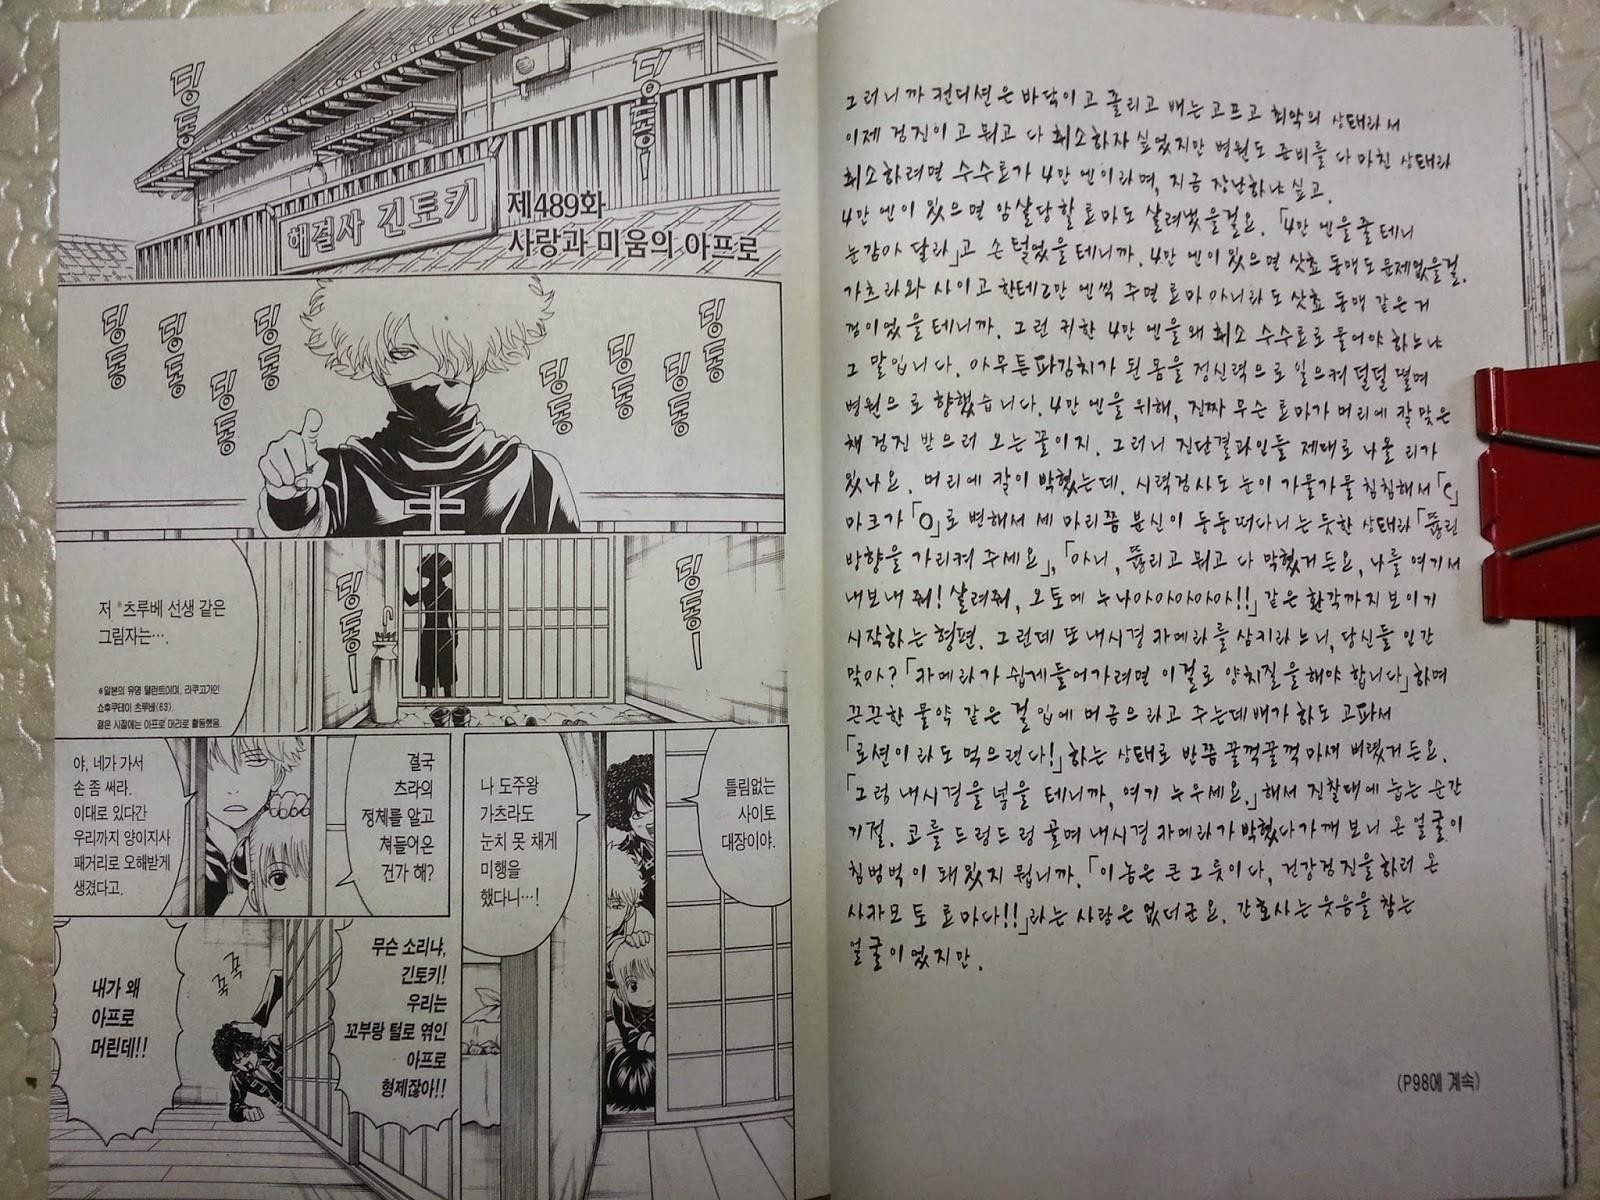 딩동-
딩동-
해결사 긴토키
제489화
사랑과 미움의 아프로
딩동
딩동
딩동
딩동
딩동
딩동
딩동
딩동
저 *츠루베 선생 같은
그림자는….
*일본의 유명 탤런트이며, 라쿠고가인
쇼후쿠테이 츠루베(63).
젊은 시절에는 아프로 머리로 활동했음.
딩동-
딩동-
틀림없는
사이토
대장이야.
나 도주왕
가츠라도
눈치 못 채게
미행을
했다니…!
결국
츠라의
정체를 알고
쳐들어온
건가 해?
야, 네가 가서
손 좀 써라.
이대로 있다간
우리까지 양이지사
패거리로 오해받게
생겼다고.
무슨 소리냐,
긴토키!
우리는
꼬부랑 털로 엮인
아프로
형제잖아!!
꾹
꾹
내가 왜
아프로
머린데!!
그러니까 컨디션은 바닥이고 졸리고 배는 고프고 최악의 상태라서
이제 검진이고 뭐고 다 취소하자 싶었지만 병원도 준비를 다 마친 상태라
취소하려면 수수료가 4만 엔이라며, 지금 장난하냐 싶고.
4만 엔이 있으면 암살당할 료마도 살려냈을걸요. 「4만 엔을 줄 테니
눈감아 달라」고 손 털었을 테니까. 4만 엔이 있으면 삿쵸 동맹도 문제없을걸.
가츠라와 사이고한테 2만 엔씩 주면 료마 아니라도 삿쵸 동맹 같은 거
껌이었을 테니까. 그런 귀한 4만 엔을 왜 취소 수수료로 물어야 하느냐
그 말입니다. 아무튼 파김치가 된 몸을 정신력으로 일으켜 덜덜 떨며
병원으로 향했습니다. 4만 엔을 위해, 진짜 무슨 료마가 머리에 칼 맞은
채 검진 받으러 오는 꼴이지. 그러니 진단결과인들 제대로 나올 리가
있나요. 머리에 칼이 박혔는데. 시력검사도 눈이 가물가물 침침해서 「C」
마크가 「O」로 변해서 세 마리쯤 분신이 둥둥 떠다니는 듯한 상태라 「뚫린
방향을 가리켜 주세요」, 「아니, 뚫리고 뭐고 다 막혔거든요, 나를 여기서
내보내 줘! 살려줘, 오토메 누나아아아아아!!」 같은 환각까지 보이기
시작하는 형편. 그런데 또 내시경 카메라를 삼키라느니, 당신들 인간
맞아? 「카메라가 쉽게 들어가려면 이걸로 양치질을 해야 합니다」 하며
끈끈한 물약 같은 걸 입에 머금으라고 주는데 배가 하도 고파서
「로션이라도 먹으련다!」 하는 상태로 반쯤 꿀꺽꿀꺽 마셔 버렸거든요.
「그럼 내시경을 넣을 테니까, 여기 누우세요.」 해서 진찰대에 눕는 순간
기절. 코를 드렁드렁 골며 내시경 카메라가 박혔다가 깨 보니 온 얼굴이
침범벅이 돼 있지 뭡니까. 「이놈은 큰 그릇이다, 건강검진을 하러 온
사카모토 료마다!!」라는 사람은 없더군요. 간호사는 웃음을 참는
얼굴이었지만.
(P98에 계속)